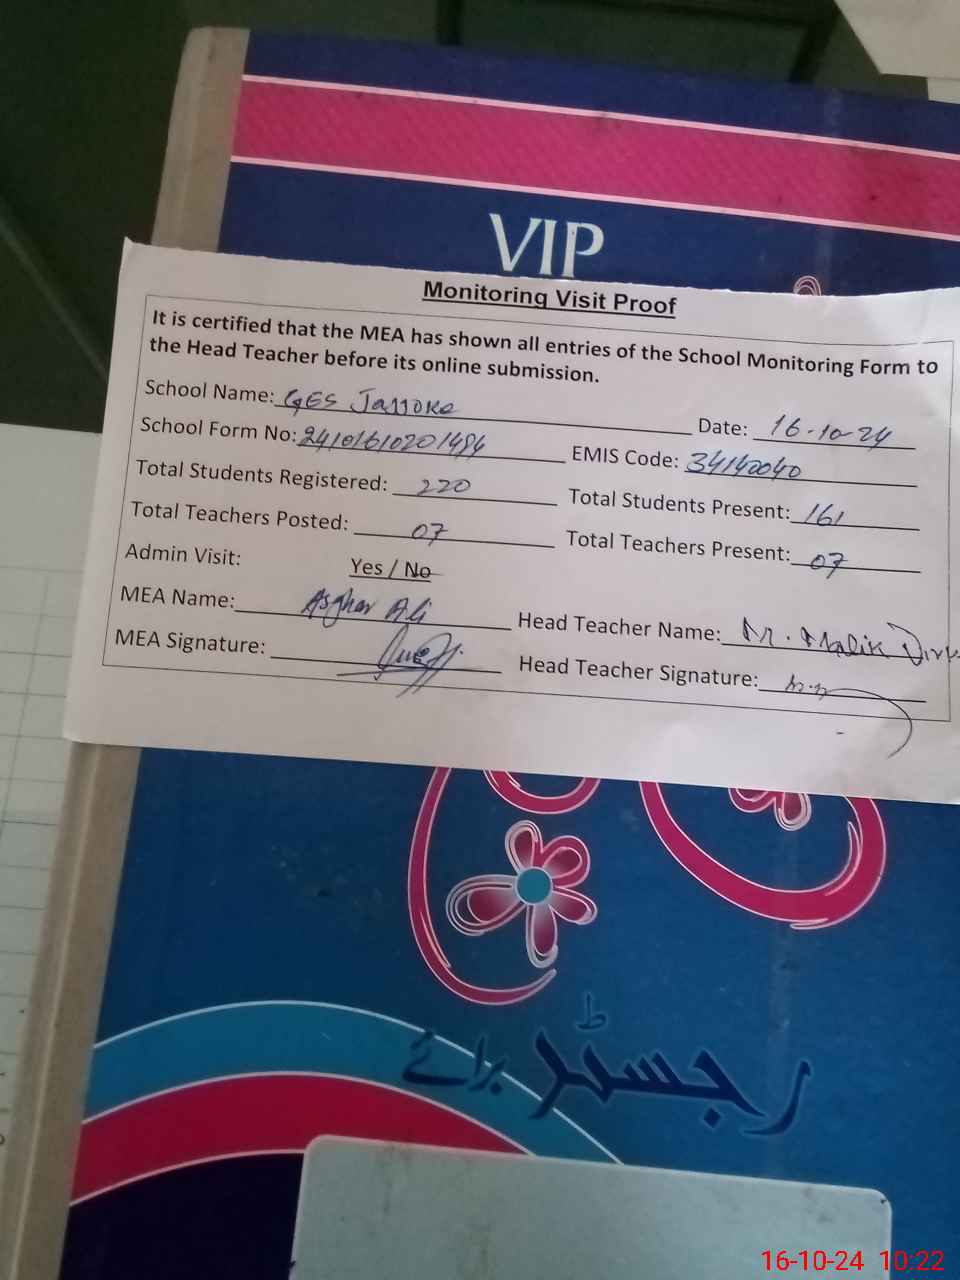 VIP
Monitoring Visit Proof
It is certified that the MEA has shown all entries of the School Monitoring Form to
the Head Teacher before its online submission.
School Name: GES Jassoke Date: 16-10-24
School Form No: 24101610201494 EMIS Code: 34140040
Total Students Registered: 220 Total Students Present: 161
Total Teachers Posted: 07 Total Teachers Present: 07
Admin Visit: Yes / No
MEA Name: Asghar Ali Head Teacher Name: M. Malik
MEA Signature: Head Teacher Signature:
رجسٹر برائے
16-10-24 10:22